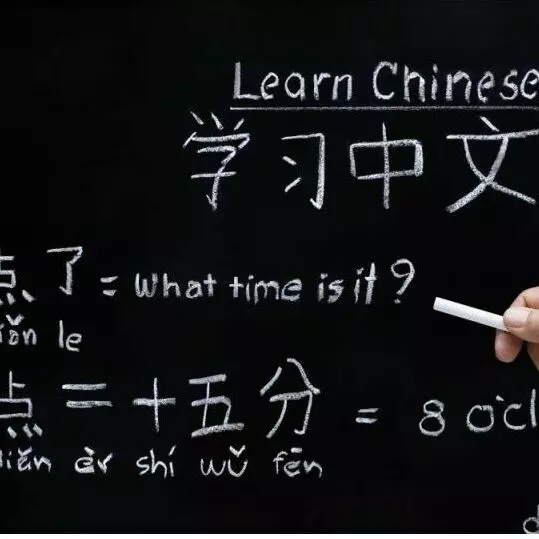 Learn Chinese
学习中文
点了 = What time is it?
le
点二十五分 = 8 o'cl
èr shí wǔ fēn